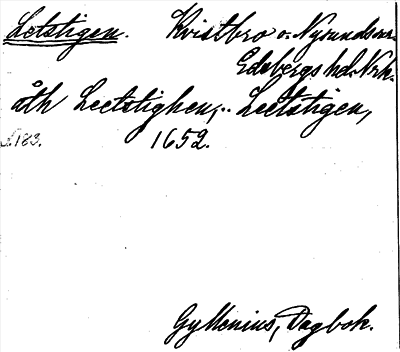 Letstigen. Kvistbro o. Nysunds sn.
Edsbergs hd. Nrk.
åth Leetstighen, .. Leetstigen,
s. 183. 1652.
Gyllenius, Dagbok.